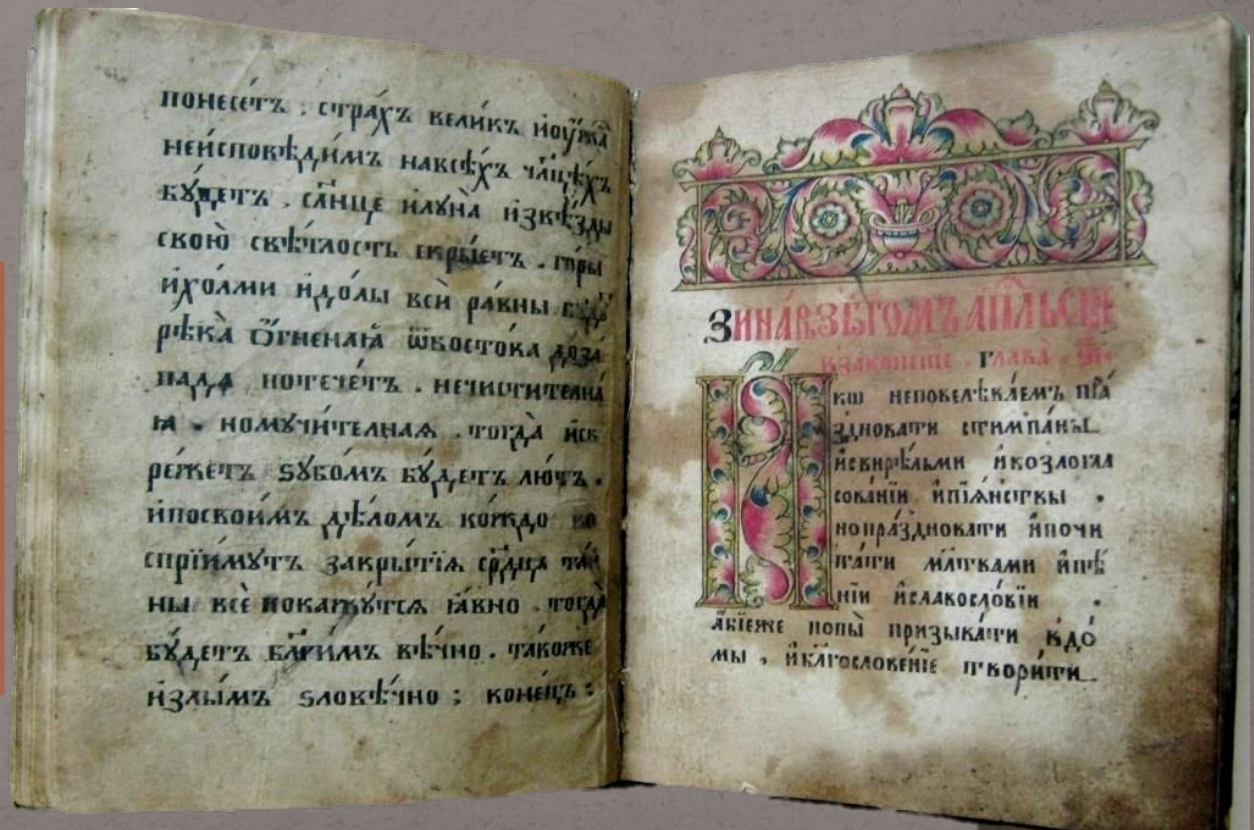 понесе́тъ . стра́хъ вели́къ и҆оу҆́жа
неи҆сповѣ́димъ навсѣ́хъ ч҃лцѣ́хъ
бꙋ́детъ . сл҃нце и҆лꙋна̀ и҆звѣ́зды
свою̀ свѣ́тлость скры́етъ . го́ры
и҆хо́лми и҆до́лы всѝ ра́вны
рѣ́ка ѻ҆́гненаѧ ѿвосто́ка доза́
пада потече́тъ . нечистителна́
ꙗ . номꙋчи́телнаѧ . тогда̀ и҆ск
ре́жетъ ѕꙋбо́мъ бꙋ́детъ лю́тъ .
и҆посвои́мъ дѣ́ломъ ко́ждо во
спрїи́мꙋтъ закры́тїѧ ср҃дца та́и
ны всѐ пока́жꙋтсѧ ꙗ҆́вно . тогда̀
бꙋ́детъ бл҃ги́мъ вѣ́чно . та́коже
и҆злы́мъ ѕловѣ́чно ; коне́цъ :
главà
ꙗкѡ неповелѣва́емъ пра́
здновати стимпа́ны
и҆свирѣ́льми и҆козлогла
сова́нїи и҆пїѧ́нствы .
нопра́здновати и҆почи
та́ти мл҃твами и҆пѣ́
нїи и҆славосло́вїи .
а҆́бїеже попы̀ призыва́ти вдо́
мы , и҆бл҃гослове́нїе твори́ти